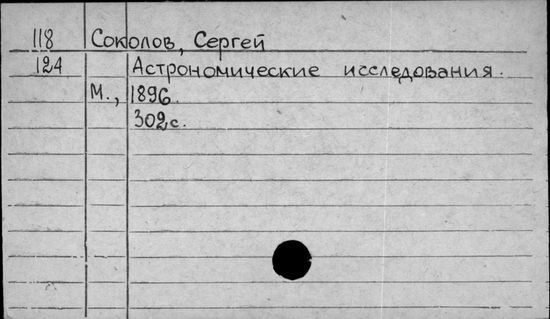 118 Соколов, Сергей
124 Астрономические исследования.
М., 1896.
302 с.